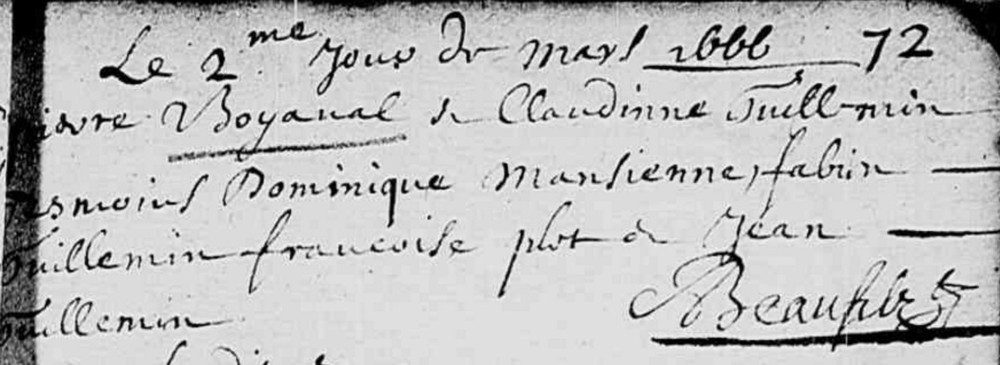 Le 2me Jour de Mars 1666 72
pierre Boyaual & Claudinne Guillemin
tesmoins Dominique Mansienne, fabien
Guillemin francoise plot & Jean
Guillemin
Beaufilz